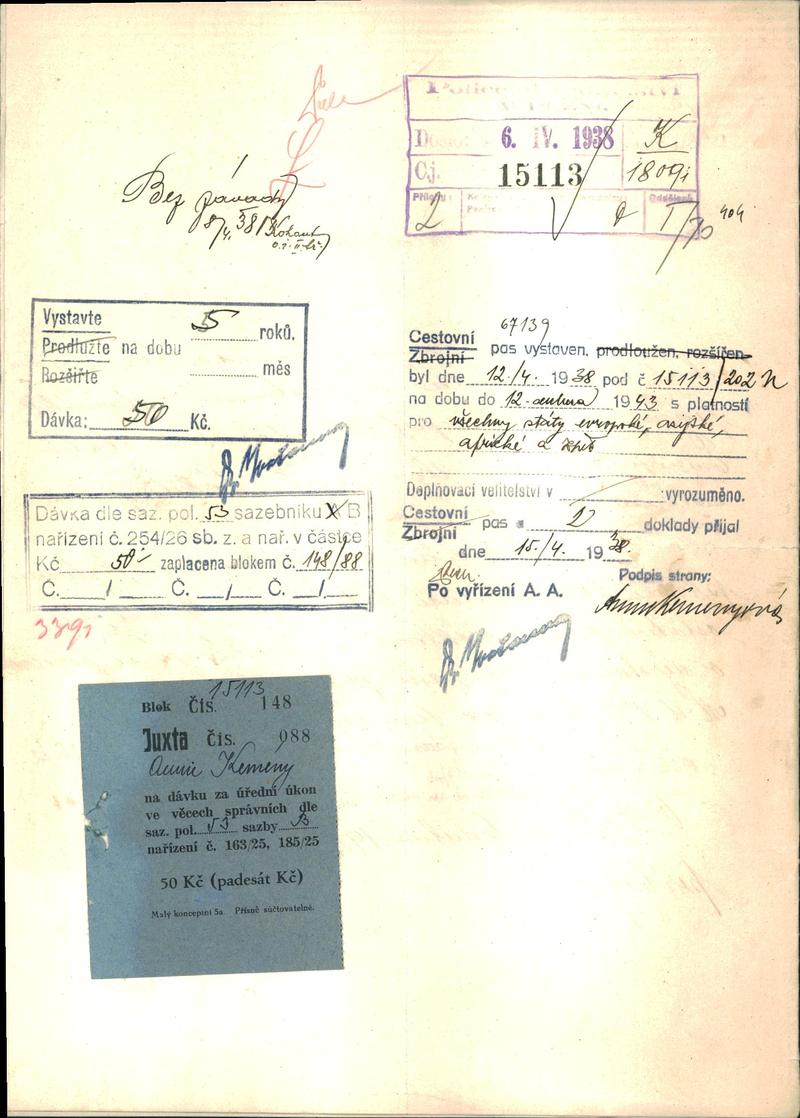 Došlo: 6. IV. 1938 K
Čj. 15113 1809i
Přílohy: 2 Oddělení I/30 404
Bez závady
8/4. 38
Vystavte
Prodlužte na dobu 5 roků,
Rozšiřte měs
Dávka: 50 Kč.
Dávka dle saz. pol. 53 sazebníku A B
nařízení č. 254/26 sb. z. a nař. v částce
Kč 50'- zaplacena blokem č. 148/88
Č. / Č. / Č. /
339i
67139
Cestovní
Zbrojní pas vystaven, prodloužen, rozšířen
byl dne 12./4. 1938 pod č 15113/202 N
na dobu do 12. dubna 1943 s platností
pro všechny státy evropské, asijské,
africké a
Doplňovací velitelství v vyrozuměno.
Cestovní
Zbrojní pas a 2 doklady přijal
dne 15./4. 1938.
Po vyřízení A. A.
Podpis strany:
15113
Blok Čís. 148
Juxta čís. 088
Annie Kemeny
na dávku za úřední úkon
ve věcech správních dle
saz. pol. 53 sazby B
nařízení č. 163/25, 185/25
50 Kč (padesát Kč)
Malý konceptní 5a. Přísně súčtovatelné.